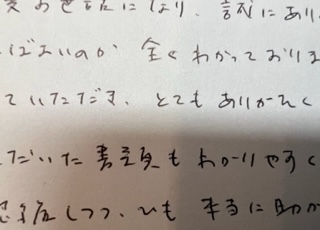 お世話になり、誠にあり
ばよいのか 全くわかっておりま
ていただき、とてもありがたく
ただいた書類もわかりやすく
感謝しつつ、いつも 本当に助か